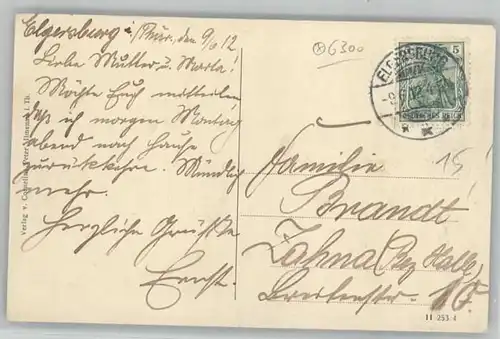 Elgersburg i/Thür., den 9/6 12
Liebe Mutter u. Marta!
Möchte Euch mitteilen,
daß ich morgen Montag
abend nach Hause
zurückkehre. Mündlich
mehr.
Herzliche Grüße
Ernst.
Verlag v.
i. Th.
6300
ELGERSBURG
5
DEUTSCHES REICH
15
Familie
Brandt
Zahna (Bez Halle)
Breitenstr. 10.
11 253 4